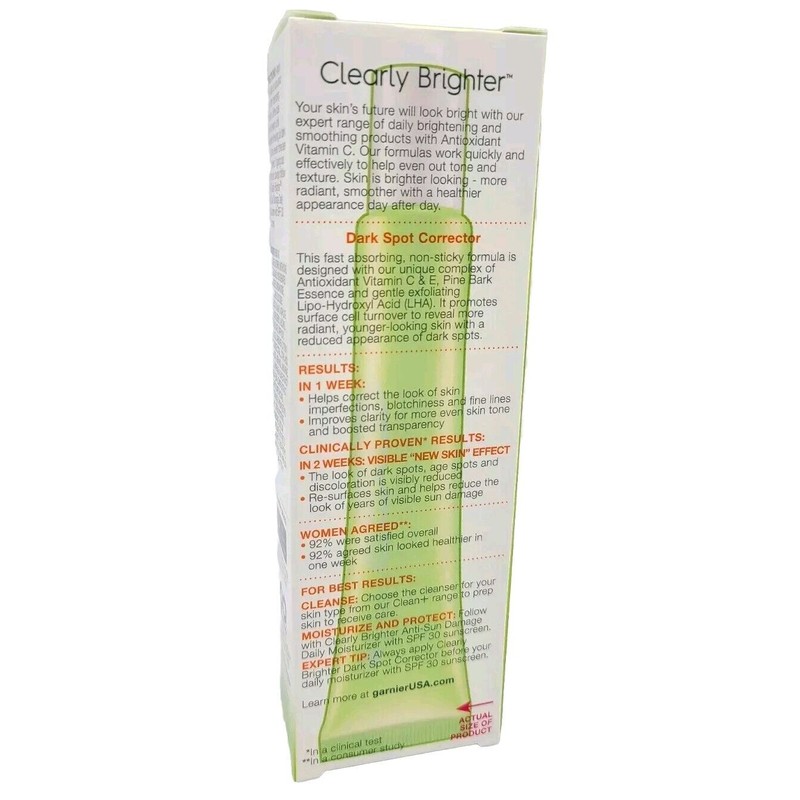 Clearly Brighter™
Your skin's future will look bright with our
expert range of daily brightening and
smoothing products with Antioxidant
Vitamin C. Our formulas work quickly and
effectively to help even out tone and
texture. Skin is brighter looking - more
radiant, smoother with a healthier
appearance day after day.
Dark Spot Corrector
This fast absorbing, non-sticky formula is
designed with our unique complex of
Antioxidant Vitamin C & E, Pine Bark
Essence and gentle exfoliating
Lipo-Hydroxyl Acid (LHA). It promotes
surface cell turnover to reveal more
radiant, younger-looking skin with a
reduced appearance of dark spots.
RESULTS:
IN 1 WEEK:
• Helps correct the look of skin
imperfections, blotchiness and fine lines
• Improves clarity for more even skin tone
and boosted transparency
CLINICALLY PROVEN* RESULTS:
IN 2 WEEKS: VISIBLE "NEW SKIN" EFFECT
• The look of dark spots, age spots and
discoloration is visibly reduced
• Re-surfaces skin and helps reduce the
look of years of visible sun damage
WOMEN AGREED**:
• 92% were satisfied overall
• 92% agreed skin looked healthier in
one week
FOR BEST RESULTS:
CLEANSE: Choose the cleanser for your
skin type from our Clean+ range to prep
skin to receive care.
MOISTURIZE AND PROTECT: Follow
with Clearly Brighter Anti-Sun Damage
Daily Moisturizer with SPF 30 sunscreen.
EXPERT TIP: Always apply Clearly
Brighter Dark Spot Corrector before your
daily moisturizer with SPF 30 sunscreen.
Learn more at garnierUSA.com
ACTUAL
SIZE OF
PRODUCT
*In a clinical test
**In a consumer study